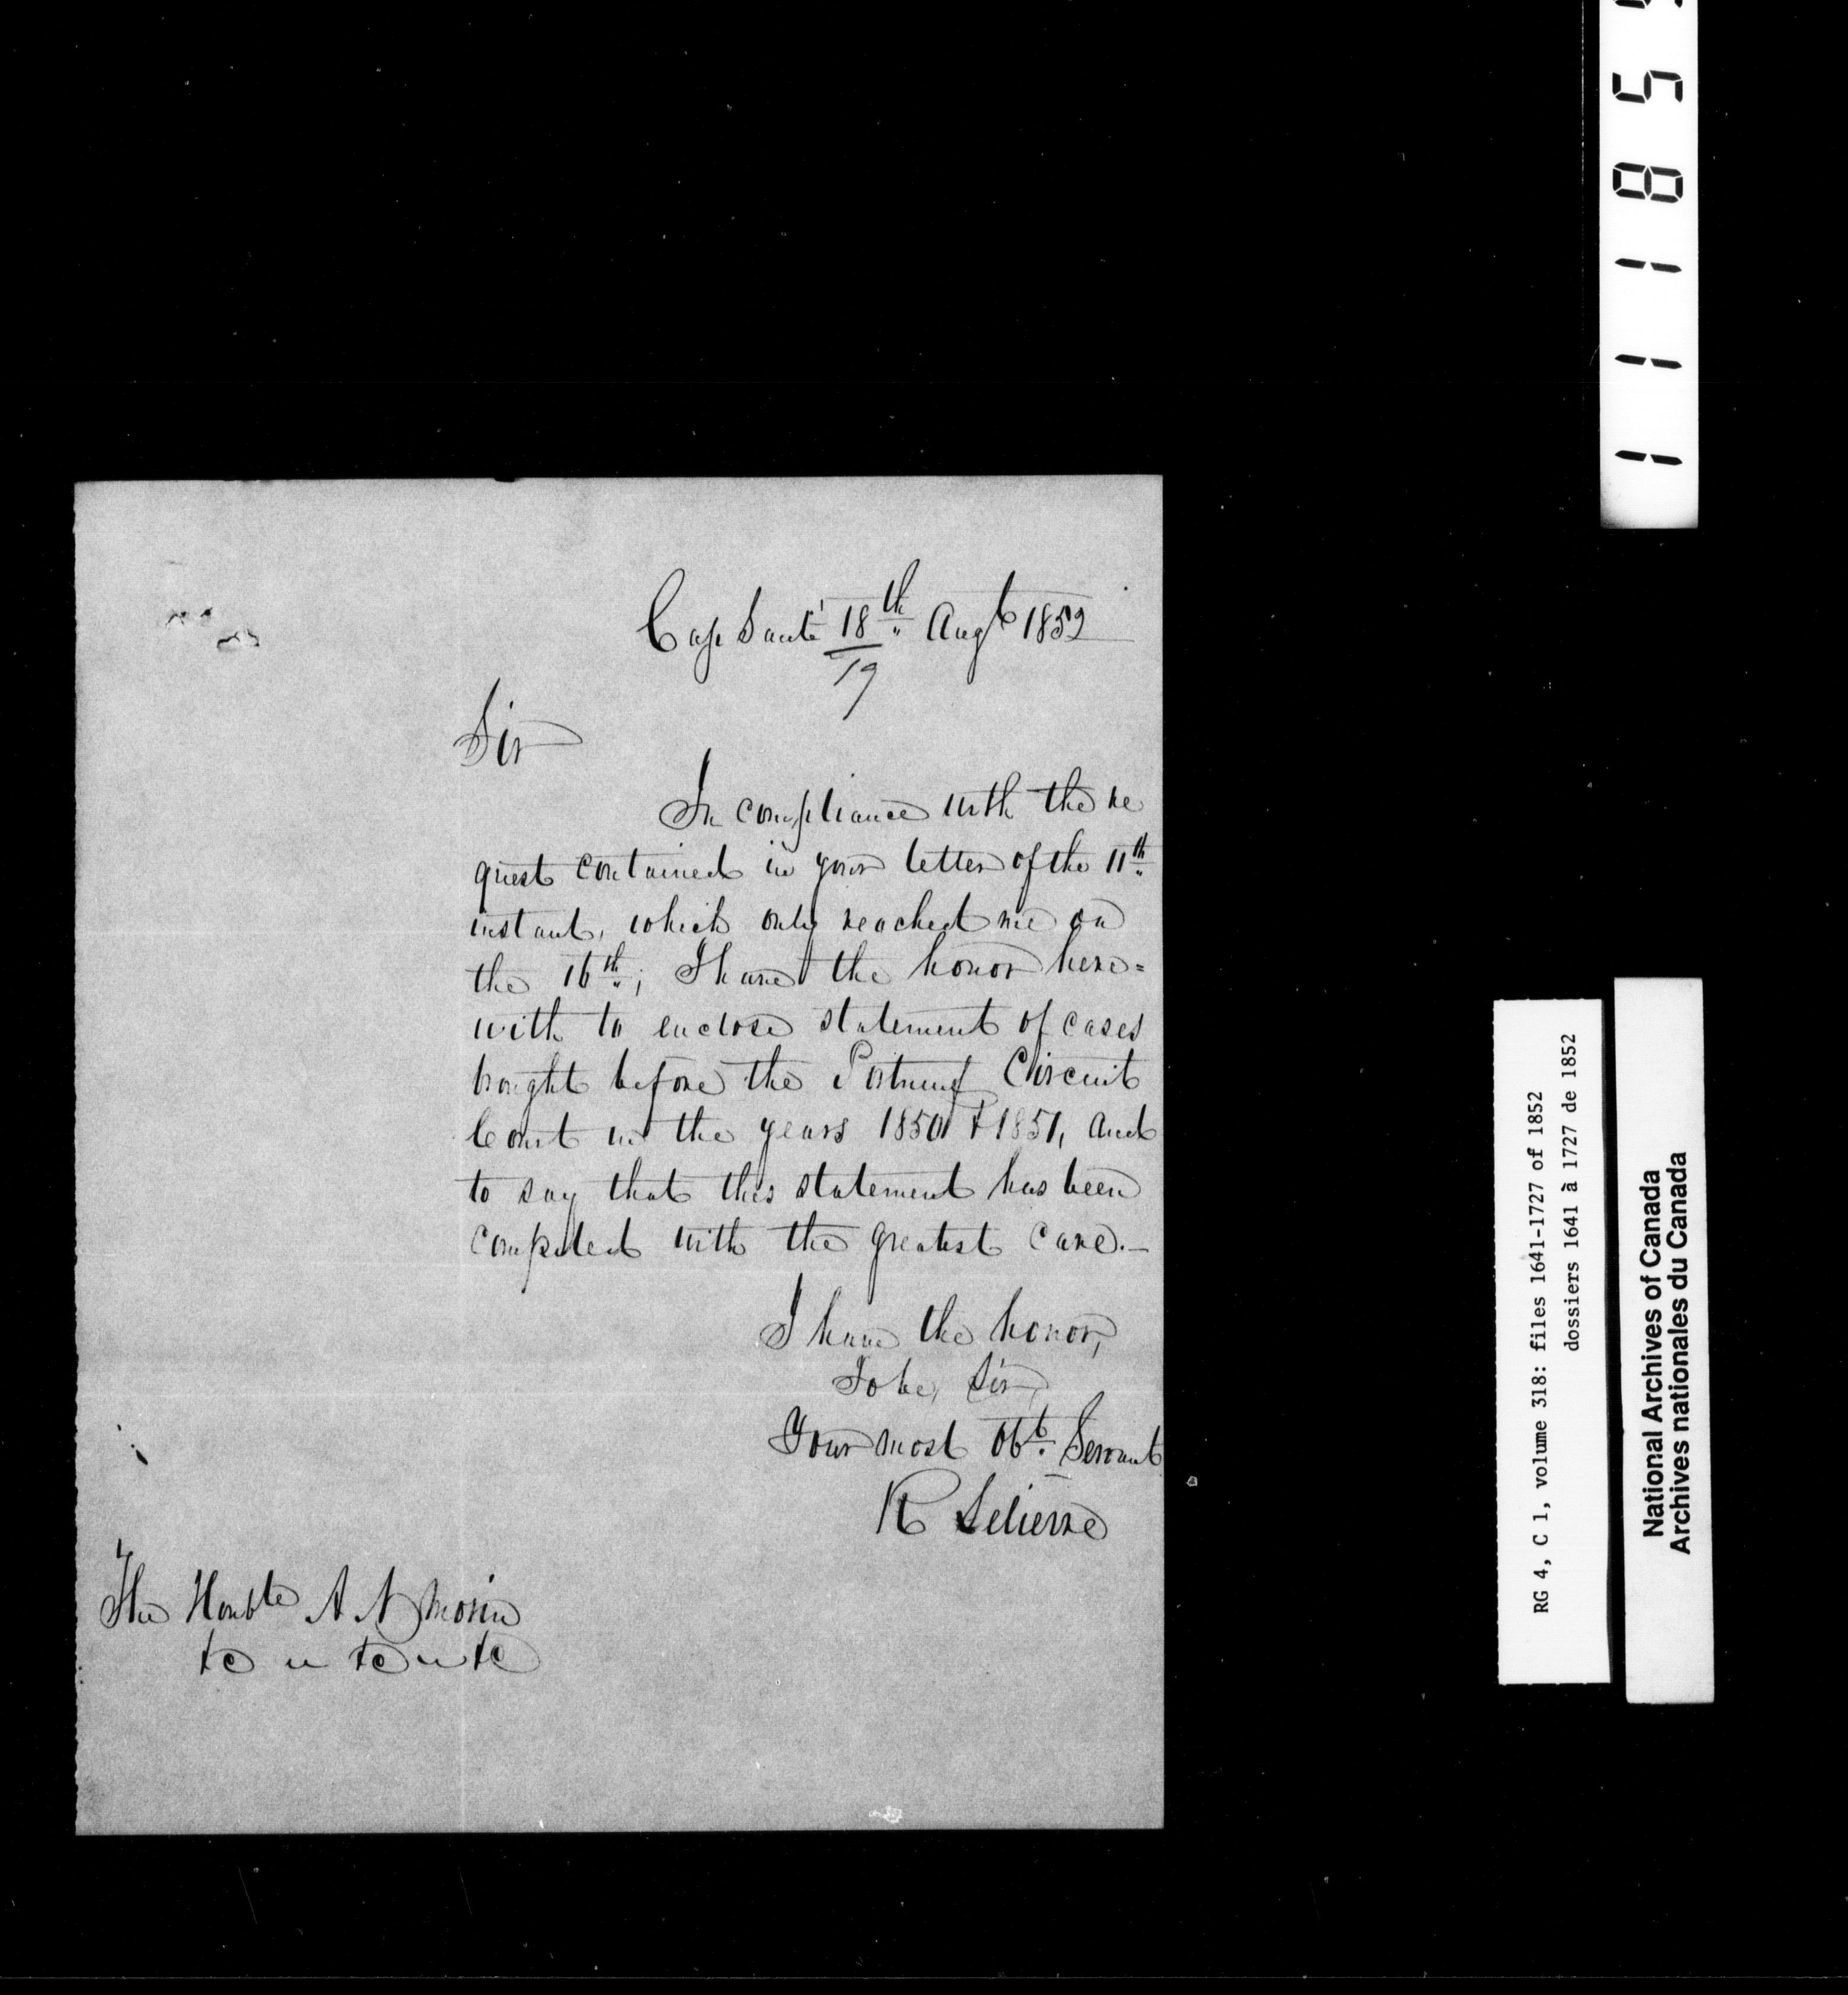 Cap Santé 18th Augt 1852
19
Sir
In compliance with the re
quest contained in your letter of the 11th
instant, which only reached me on
the 16th; I have the honor here=
with to enclose statement of cases
brought before the Portneuf Circuit
Court in the years 1850 & 1851, and
to say that this statement has been
compiled with the greatest care.—
I have the honor,
To be, Sir,
Your most Obt. Servant
The Honble A N Morin
&c " &c " &c
1 1 1 8 5
RG 4, C 1, volume 318: files 1641-1727 of 1852
dossiers 1641 à 1727 de 1852
National Archives of Canada
Archives nationales du Canada